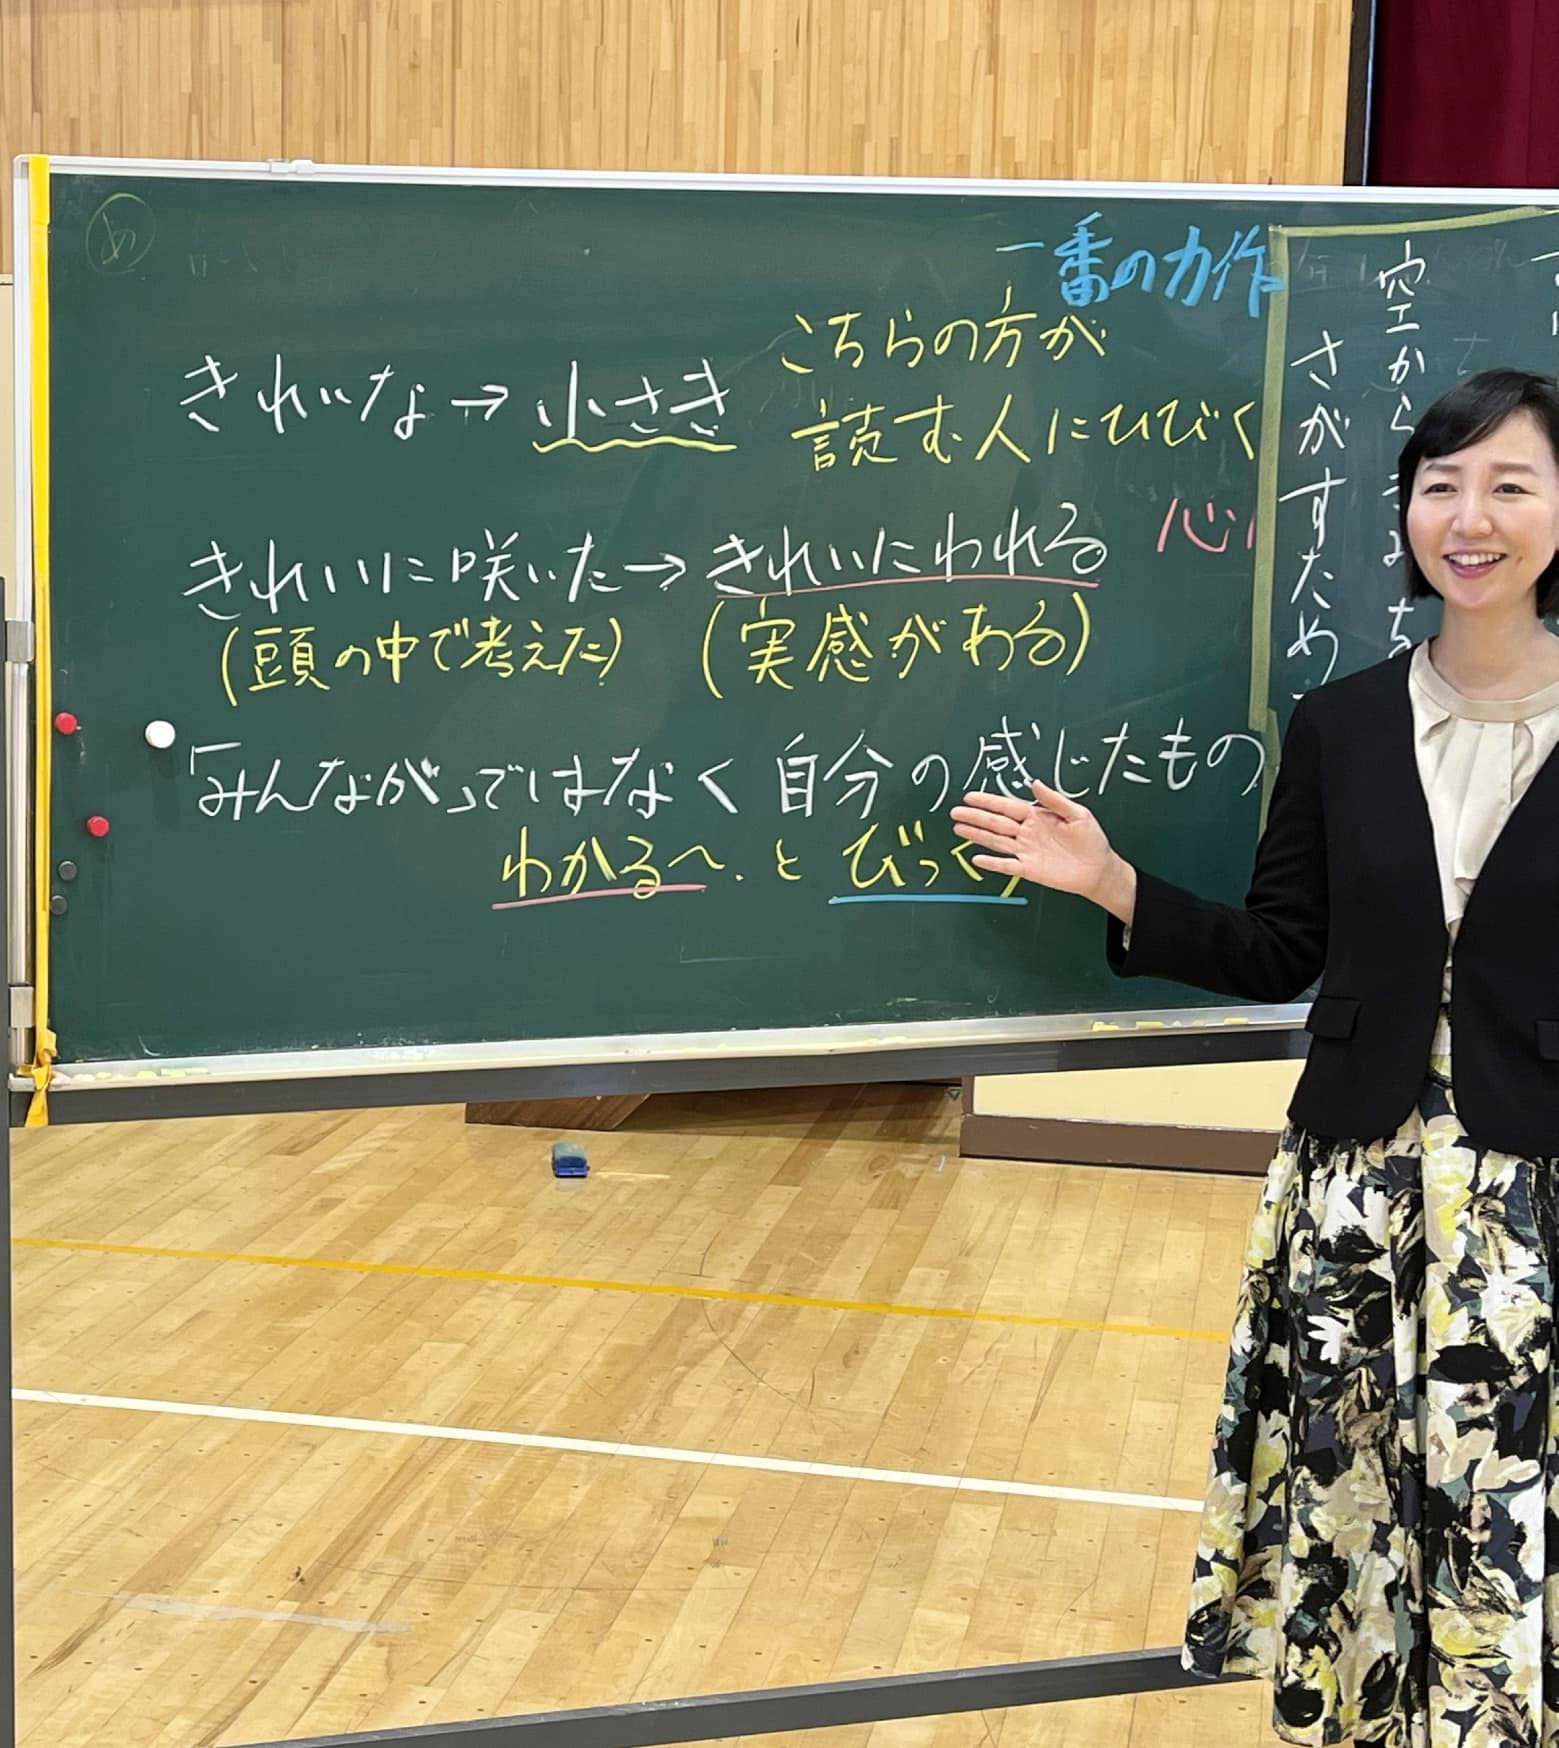 め
一番の力作
きれいな→小さき
こちらの方が
読む人にひびく
きれいに咲いた→きれいにわれる
心
(頭の中で考えた)
(実感がある)
「みんなが」ではなく 自分の感じたもの
わかる〜 と びっくり
空から
さがすため